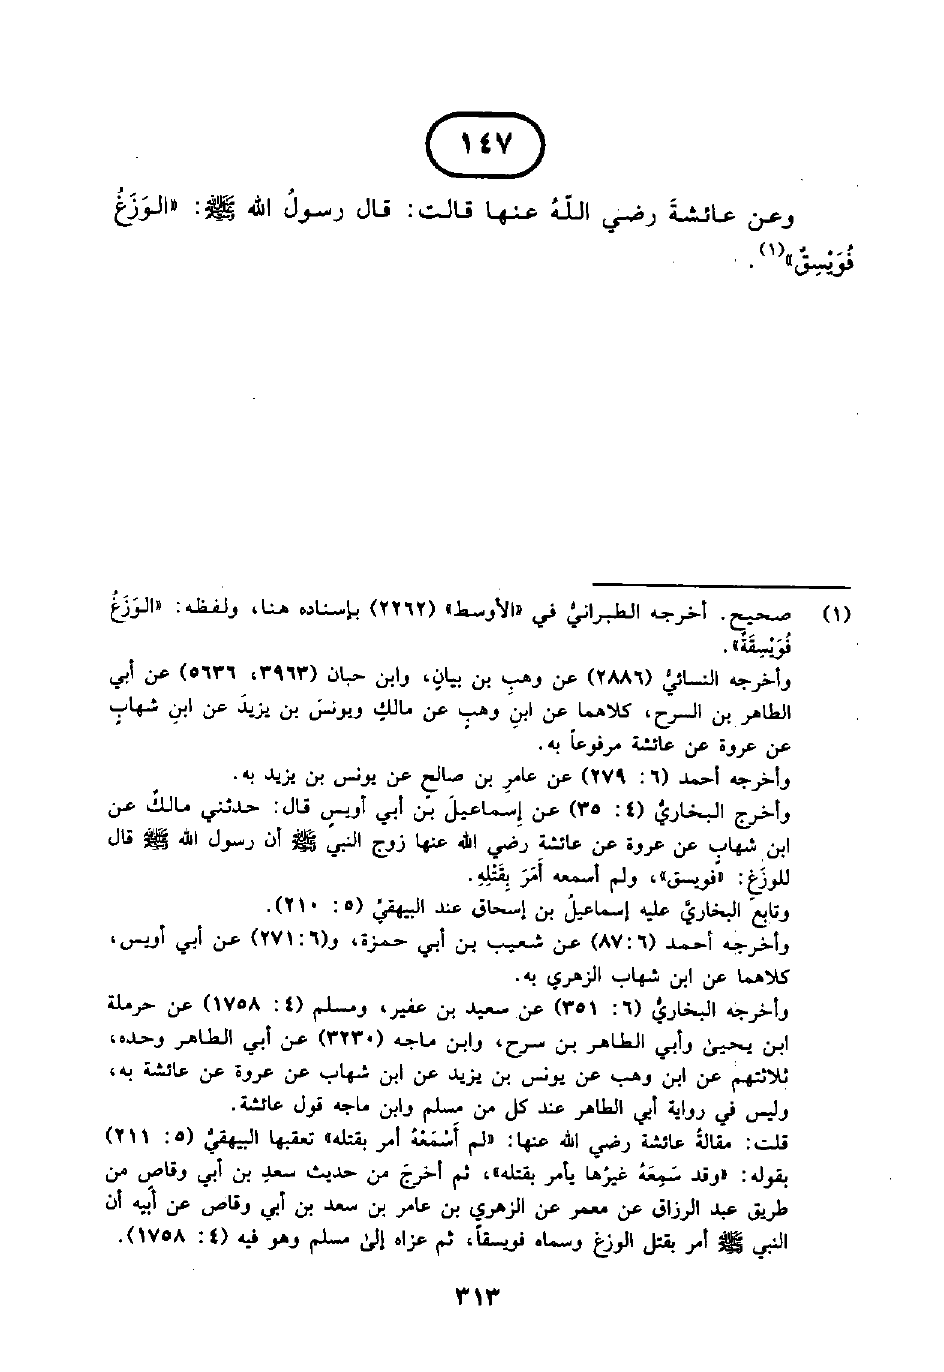 ١٤٧
وعن عائشةَ رضي اللّهُ عنها قالت: قال رسولُ الله ﷺ: «الوَزَغُ
فُوَيْسِقٌ»(١).
(١) صحيح. أخرجه الطبرانيُّ في «الأوسط» (٢٢٦٢) بإسناده هنا، ولفظه: «الوَزَغُ
فُوَيْسِقَةٌ».
وأخرجه النسائيُّ (٢٨٨٦) عن وهبِ بن بيانٍ، وابن حبان (٣٩٦٣، ٥٦٣٦) عن أبي
الطاهر بن السرح، كلاهما عن ابنِ وهبٍ عن مالكٍ ويونسَ بن يزيدَ عن ابنِ شهابٍ
عن عروة عن عائشة مرفوعاً به.
وأخرجه أحمد (٦: ٢٧٩) عن عامرِ بن صالحٍ عن يونس بن يزيد به.
وأخرج البخاريُّ (٤: ٣٥) عن إسماعيلَ بن أبي أويسٍ قال: حدثني مالكٌ عن
ابن شهابٍ عن عروة عن عائشة رضي الله عنها زوج النبي ﷺ أن رسول الله ﷺ قال
للوزَغِ: «فويسق»، ولم أسمعه أَمَرَ بِقَتْلِهِ.
وتابع البخاريَّ عليه إسماعيلُ بن إسحاق عند البيهقيُّ (٥: ٢١٠).
وأخرجه أحمد (٦:٨٧) عن شعيب بن أبي حمزة، و(٦:٢٧١) عن أبي أويس،
كلاهما عن ابن شهاب الزهري به.
وأخرجه البخاريُّ (٦: ٣٥١) عن سعيد بن عفير، ومسلم (٤: ١٧٥٨) عن حرملة
ابن يحيىٰ وأبي الطاهر بن سرح، وابن ماجه (٣٢٣٠) عن أبي الطاهر وحده،
ثلاثتهم عن ابن وهب عن يونس بن يزيد عن ابن شهاب عن عروة عن عائشة به،
وليس في رواية أبي الطاهر عند كل من مسلم وابن ماجه قول عائشة.
قلت: مقالةُ عائشة رضي الله عنها: «لم أَسْمَعْهُ أمر بقتله» تعقبها البيهقيُّ (٥: ٢١١)
بقوله: «وقد سَمِعَهُ غيرُها يأمر بقتله»، ثم أخرجَ من حديث سعدِ بن أبي وقاصٍ من
طريق عبد الرزاق عن معمر عن الزهري بن عامر بن سعد بن أبي وقاص عن أبيه أن
النبي ﷺ أمر بقتل الوزغ وسماه فويسقاً، ثم عزاه إلىٰ مسلم وهو فيه (٤: ١٧٥٨).
٣١٣